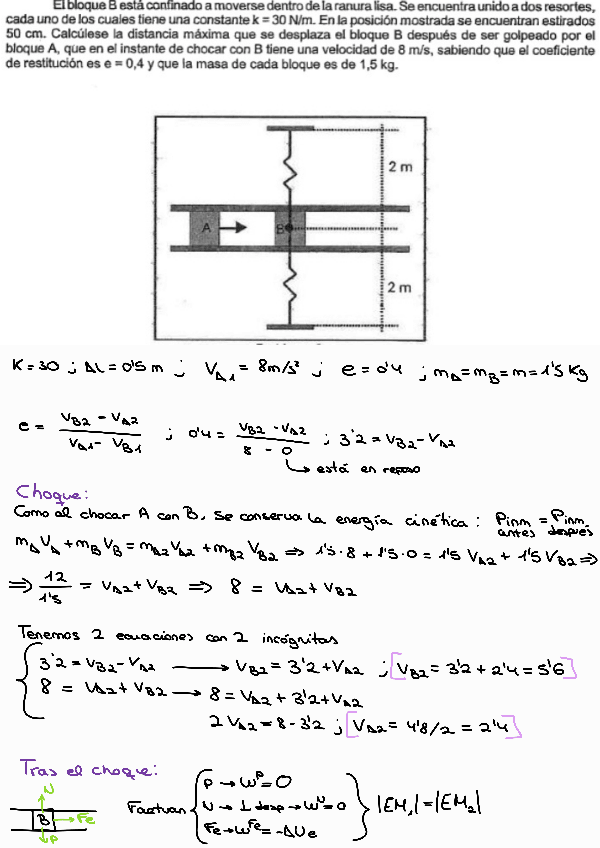 El bloque B está confinado a moverse dentro de la ranura lisa. Se encuentra unido a dos resortes,
cada uno de los cuales tiene una constante k = 30 N/m. En la posición mostrada se encuentran estirados
50 cm. Calcúlese la distancia máxima que se desplaza el bloque B después de ser golpeado por el
bloque A, que en el instante de chocar con B tiene una velocidad de 8 m/s, sabiendo que el coeficiente
de restitución es e = 0,4 y que la masa de cada bloque es de 1,5 kg.
2 m
A
B
2 m
K = 30 ; ΔL = 0'5 m ; V_A1 = 8m/s² ; e = 0'4 ; m_A = m_B = m = 1'5 Kg
e = (V_B2 - V_A2) / (V_A1 - V_B1) ; 0'4 = (V_B2 - V_A2) / (8 - 0) ; 3'2 = V_B2 - V_A2
↳ está en reposo
Choque:
Como al chocar A con B, se conserva la energía cinética : Pinm antes = Pinm después
m_A V_A + m_B V_B = m_A2 V_A2 + m_B2 V_B2 ⇒ 1'5 · 8 + 1'5 · 0 = 1'5 V_A2 + 1'5 V_B2 ⇒
⇒ 12/1'5 = V_A2 + V_B2 ⇒ 8 = V_A2 + V_B2
Tenemos 2 ecuaciones con 2 incógnitas
3'2 = V_B2 - V_A2 → V_B2 = 3'2 + V_A2 ; [V_B2 = 3'2 + 2'4 = 5'6]
8 = V_A2 + V_B2 → 8 = V_A2 + 3'2 + V_A2
2 V_A2 = 8 - 3'2 ; [V_A2 = 4'8/2 = 2'4]
Tras el choque:
N
B → Fe
P
Factuan { P → W^P = 0
N → ⊥ desp → W^N = 0
Fe → W^Fe = -ΔUe } |EM₁| = |EM₂|